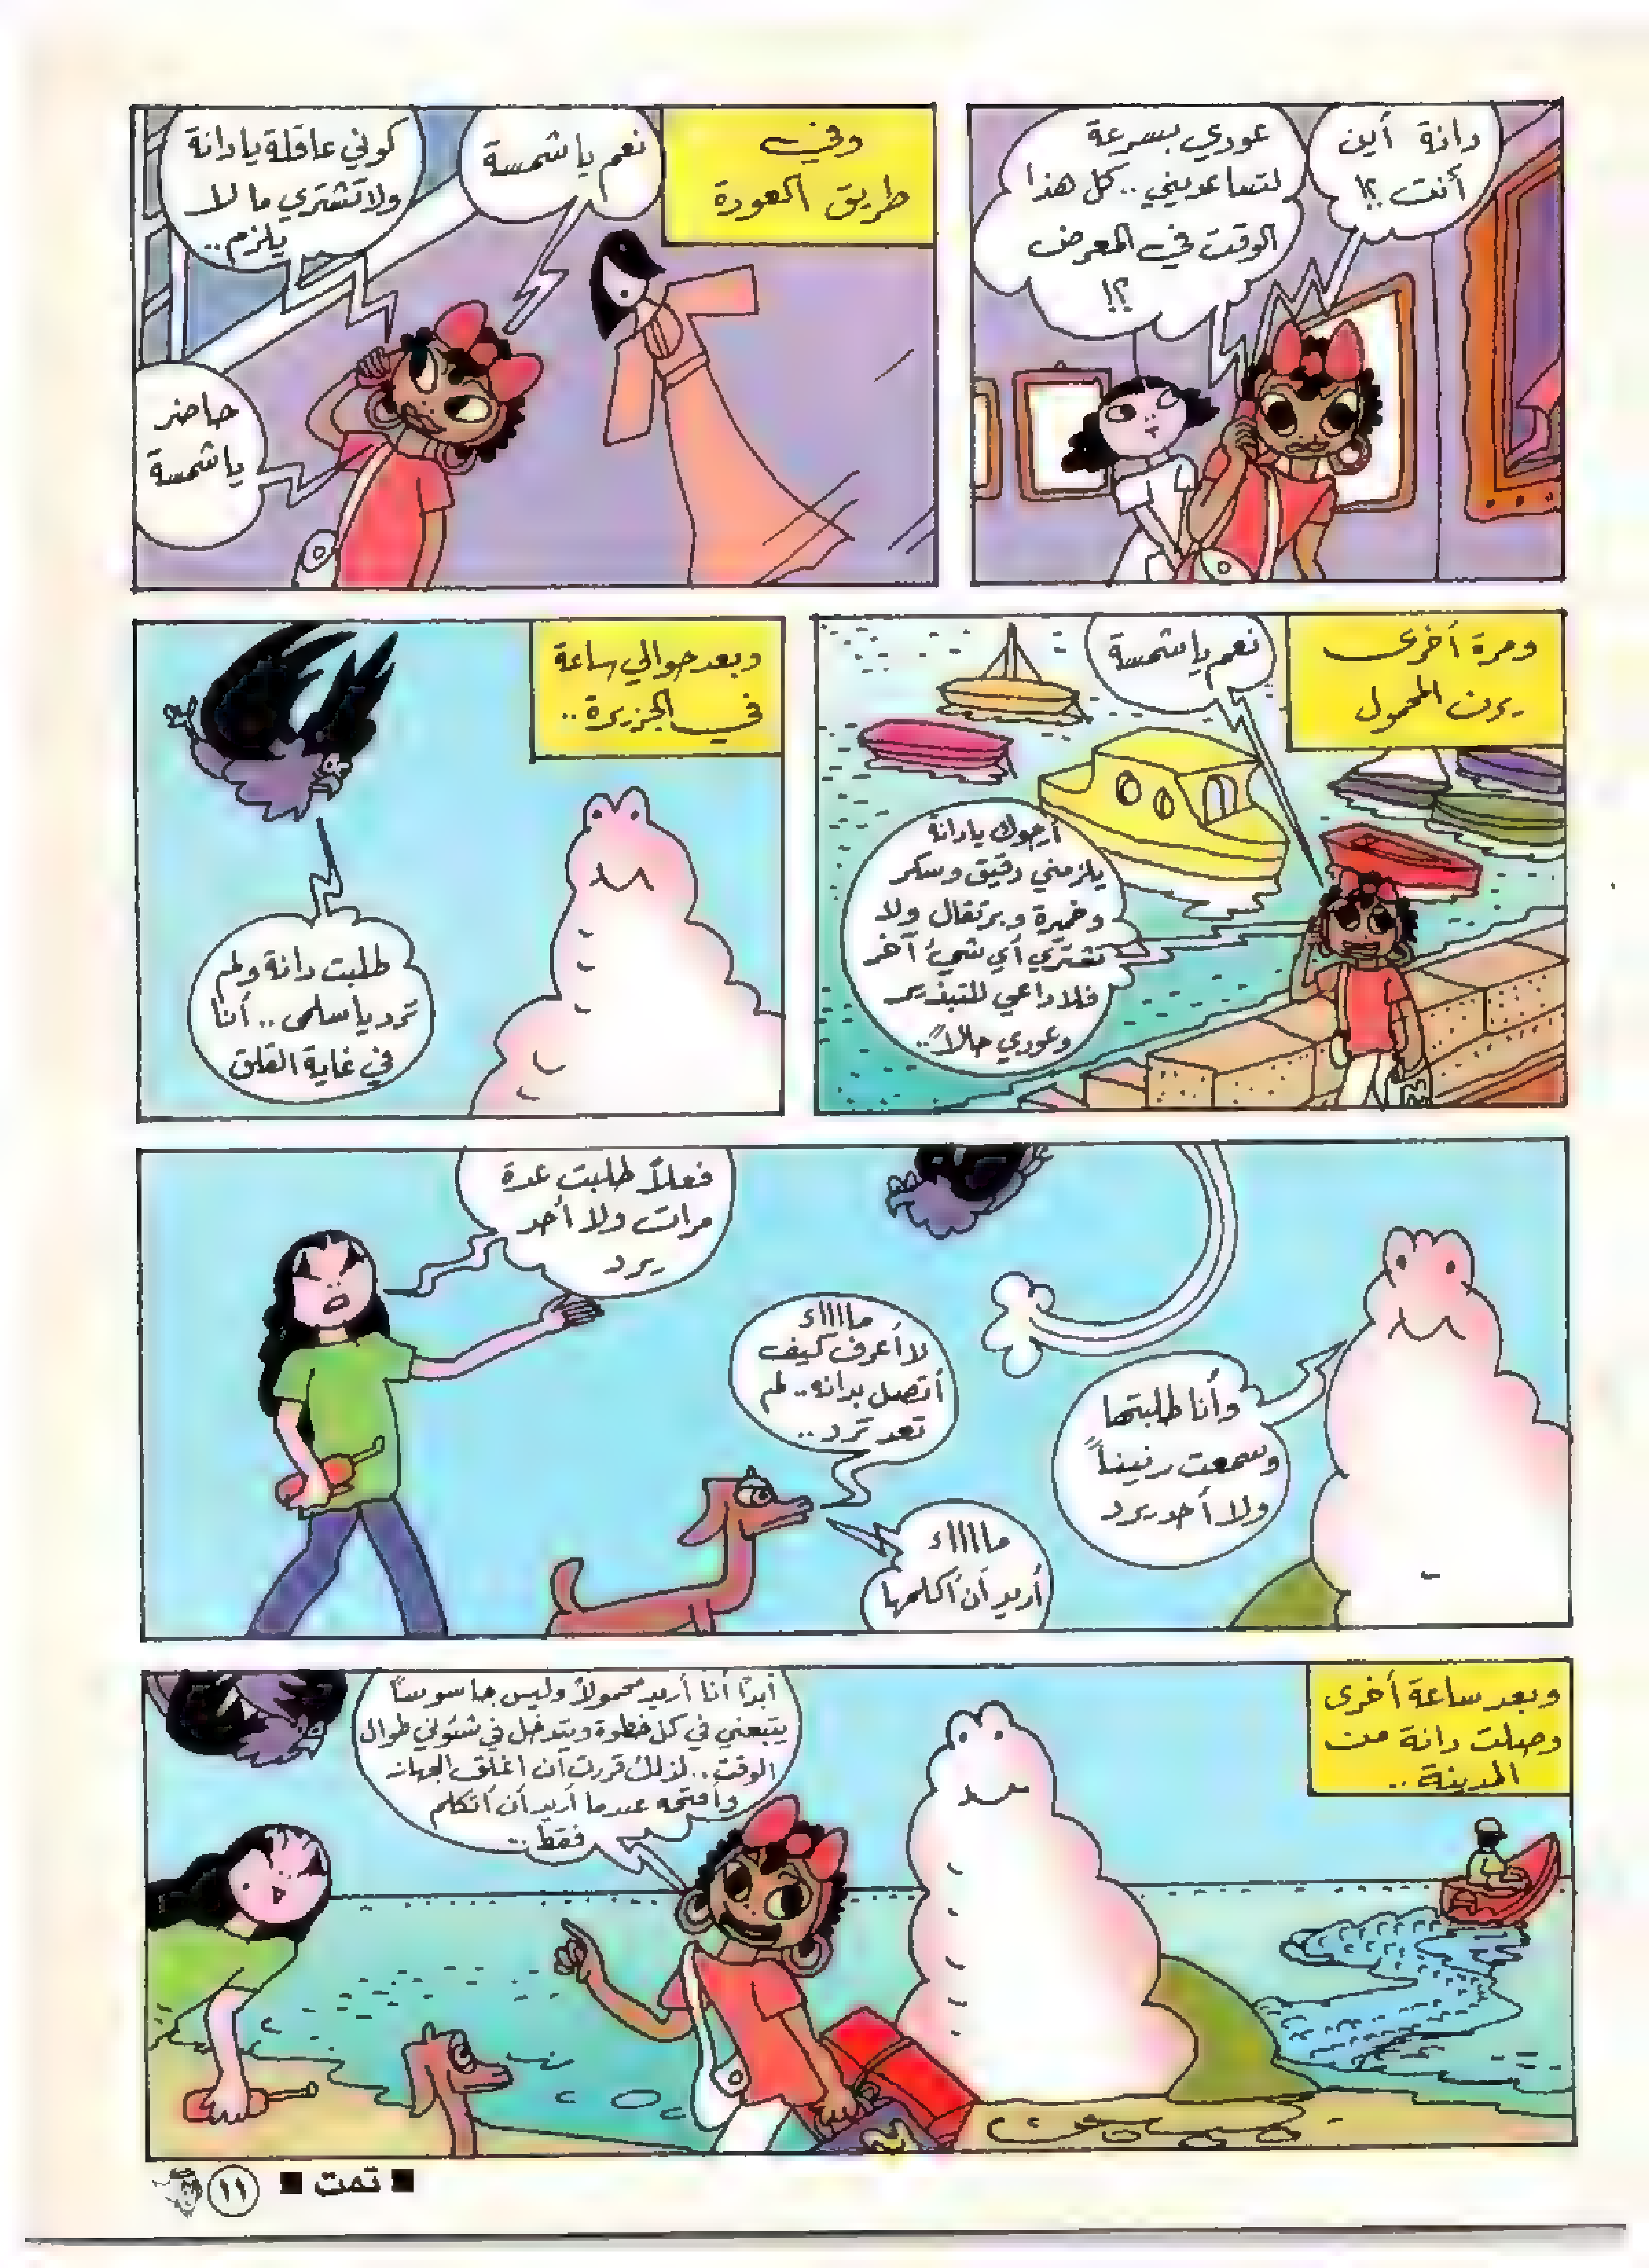 دانة أين
أنت ؟!
عودي بسرعة
لتساعديني .. كل هذا
الوقت في المعرض
؟!
وفي
طريق العودة
نعم يا شمسة
كوني عاقلة يا دانة
ولا تشتري ما لا
يلزم ..
حاضر
يا شمسة
ومرة أخرى
يرن المحمول
نعم يا شمسة
أرجوك يا دانة
يلزمني دقيق وسكر
وخميرة وبرتقال ولا
تشتري أي شيء آخر
فلا داعي للتبذير
وعودي حالاً ..
وبعد حوالي ساعة
في الجزيرة ..
طلبت دانة ولم
ترد يا سلمى .. أنا
في غاية القلق
وأنا طلبتها
وسمعت رنيناً
ولا أحد يرد
ماااااء
لا أعرف كيف
أتصل بدانه .. لم
تعد ترد ..
ماااااء
أريد أن أكلمها
فعلاً طلبت عدة
مرات ولا أحد
يرد
وبعد ساعة أخرى
وصلت دانة من
المدينة ..
أبداً أنا أريد محمولاً وليس جاسوساً
يتبعني في كل خطوة ويتدخل في شئوني طوال
الوقت .. لذلك قررت أن أغلق الجهاز
وأفتحه عندما أريد أن أتكلم
فقط ..
■ تمت ■
١١